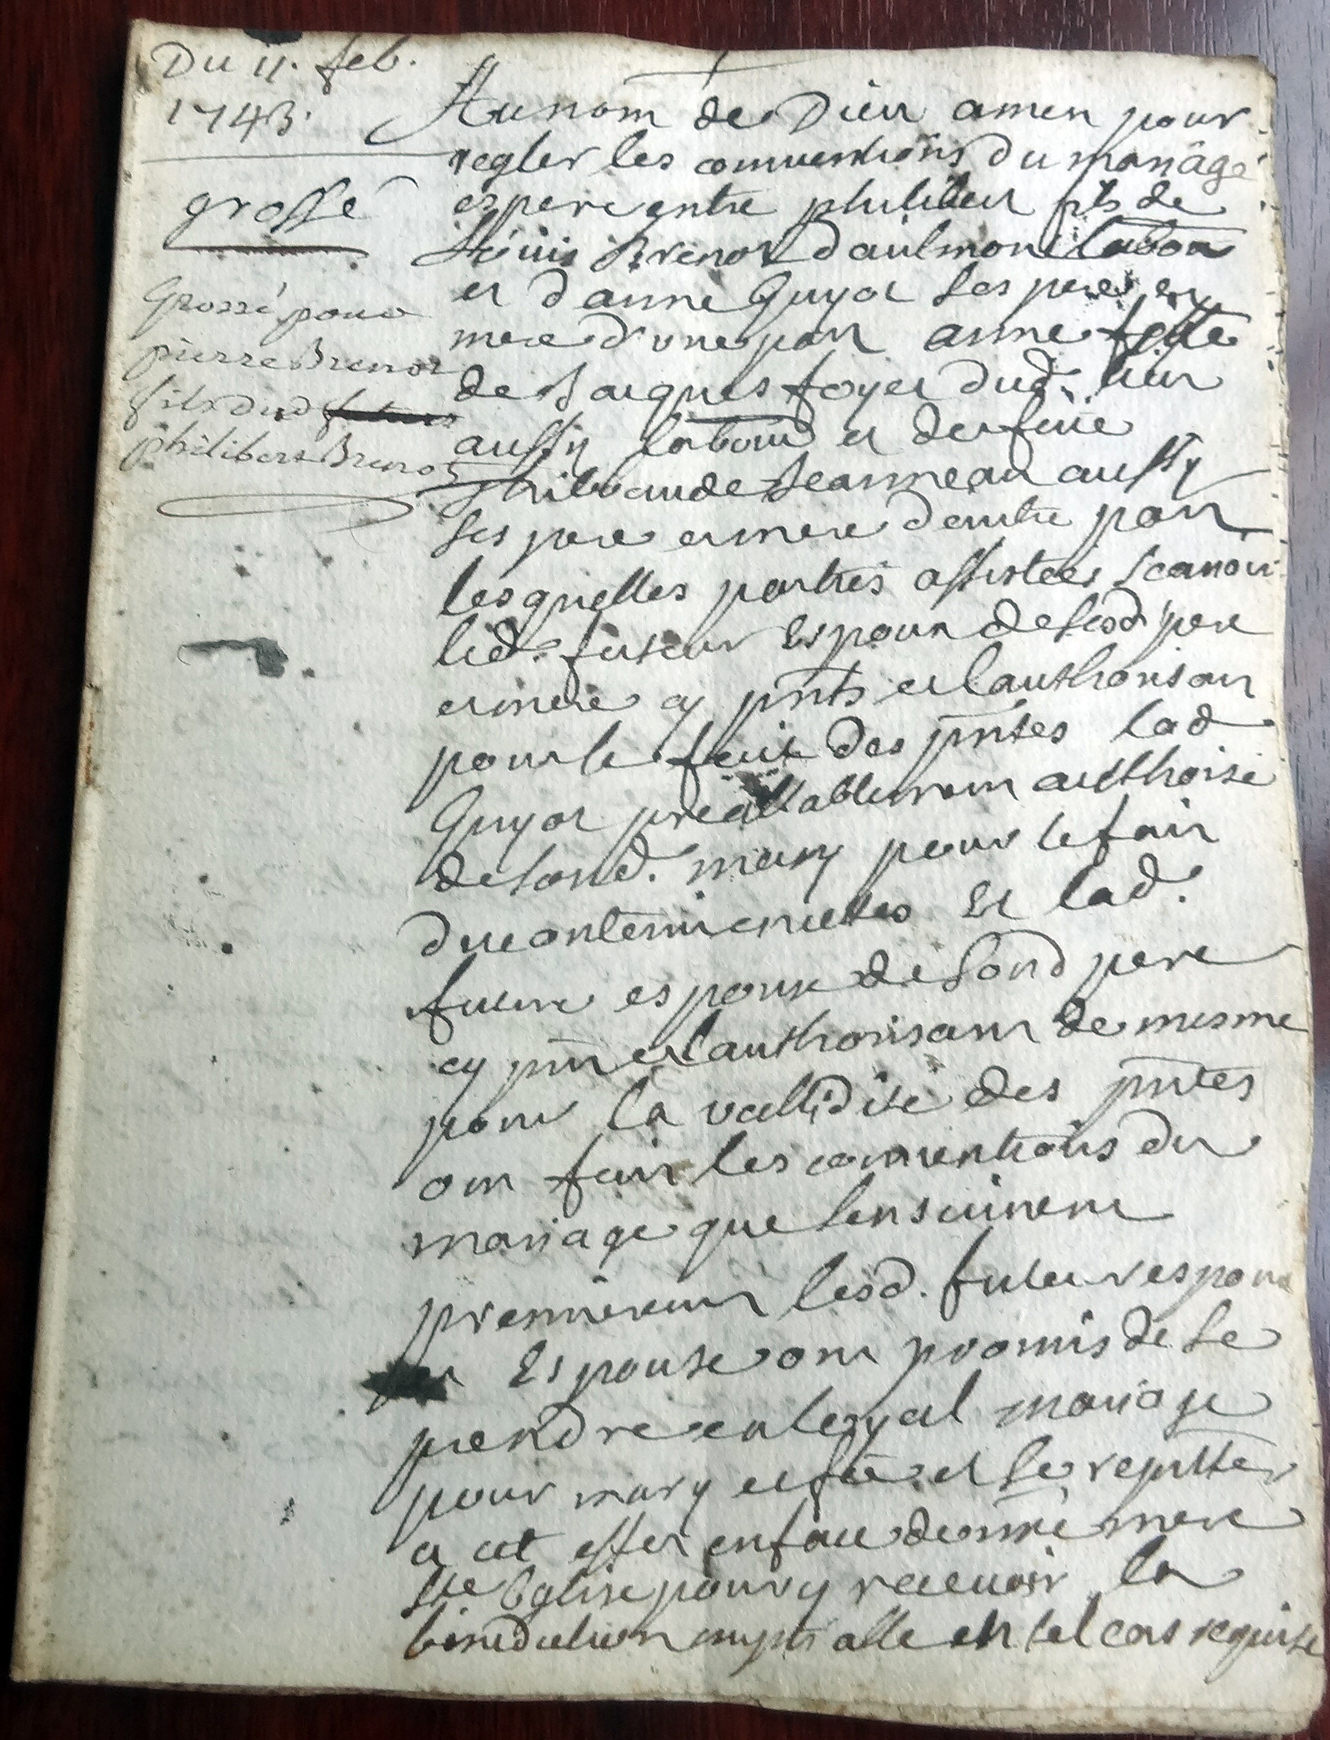 Du 11. feb.
1743.
grossé
Grossé pour
pierre Brenot
fils dud
philibert Brenot
Au nom de Dieu amen pour
regler les conventions du mariage
espere entre philibert fils de
Louis Brenot d'aulmont labour
et d'anne Guyot ses pere et
mere d'une part anne fille
de Jacques foyer dud. lieu
aussy labour et de feüe
Thibaude Jeanneau aussy
ses pere et mere d'autre part
lesquelles parties assistées scauoir
led. futeur Espoux de sesd pere
et mere cy pnts et l'authorisant
pour le fait des pntes lad
Guyot preallablement authorise
de sond. mary pour le fait
du contenu en icelles Et lad.
future espouse de sond pere
cy pnt et l'authorisant de mesme
pour la vallidite des pntes
ont fait les conventions du
mariage que s'ensuivent
premierement lesd. futeur espoux
Espouse ont promis de se
prendre en loyal mariage
pour mary et fe et se repnter
a cet effet en face de nre mere
Ste Eglise pour y recevoir la
benediction nuptialle en tel cas requise